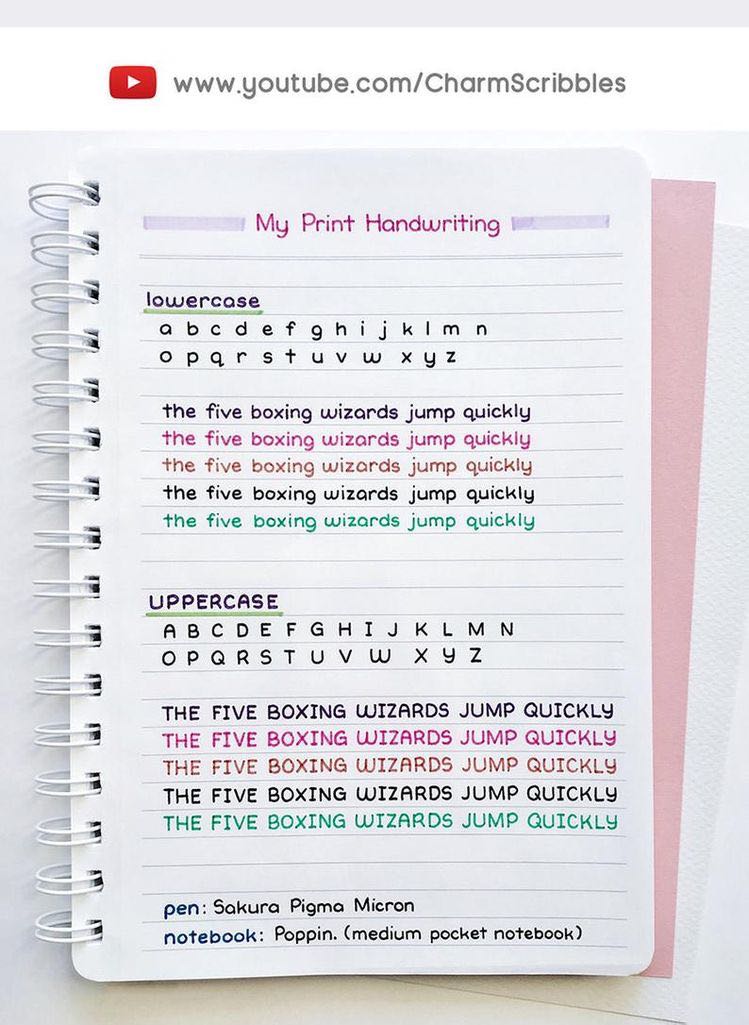 www.youtube.com/CharmScribbles
My Print Handwriting
lowercase
a b c d e f g h i j k l m n
o p q r s t u v w x y z
the five boxing wizards jump quickly
the five boxing wizards jump quickly
the five boxing wizards jump quickly
the five boxing wizards jump quickly
the five boxing wizards jump quickly
UPPERCASE
A B C D E F G H I J K L M N
O P Q R S T U V W X Y Z
THE FIVE BOXING WIZARDS JUMP QUICKLY
THE FIVE BOXING WIZARDS JUMP QUICKLY
THE FIVE BOXING WIZARDS JUMP QUICKLY
THE FIVE BOXING WIZARDS JUMP QUICKLY
THE FIVE BOXING WIZARDS JUMP QUICKLY
pen: Sakura Pigma Micron
notebook: Poppin. (medium pocket notebook)